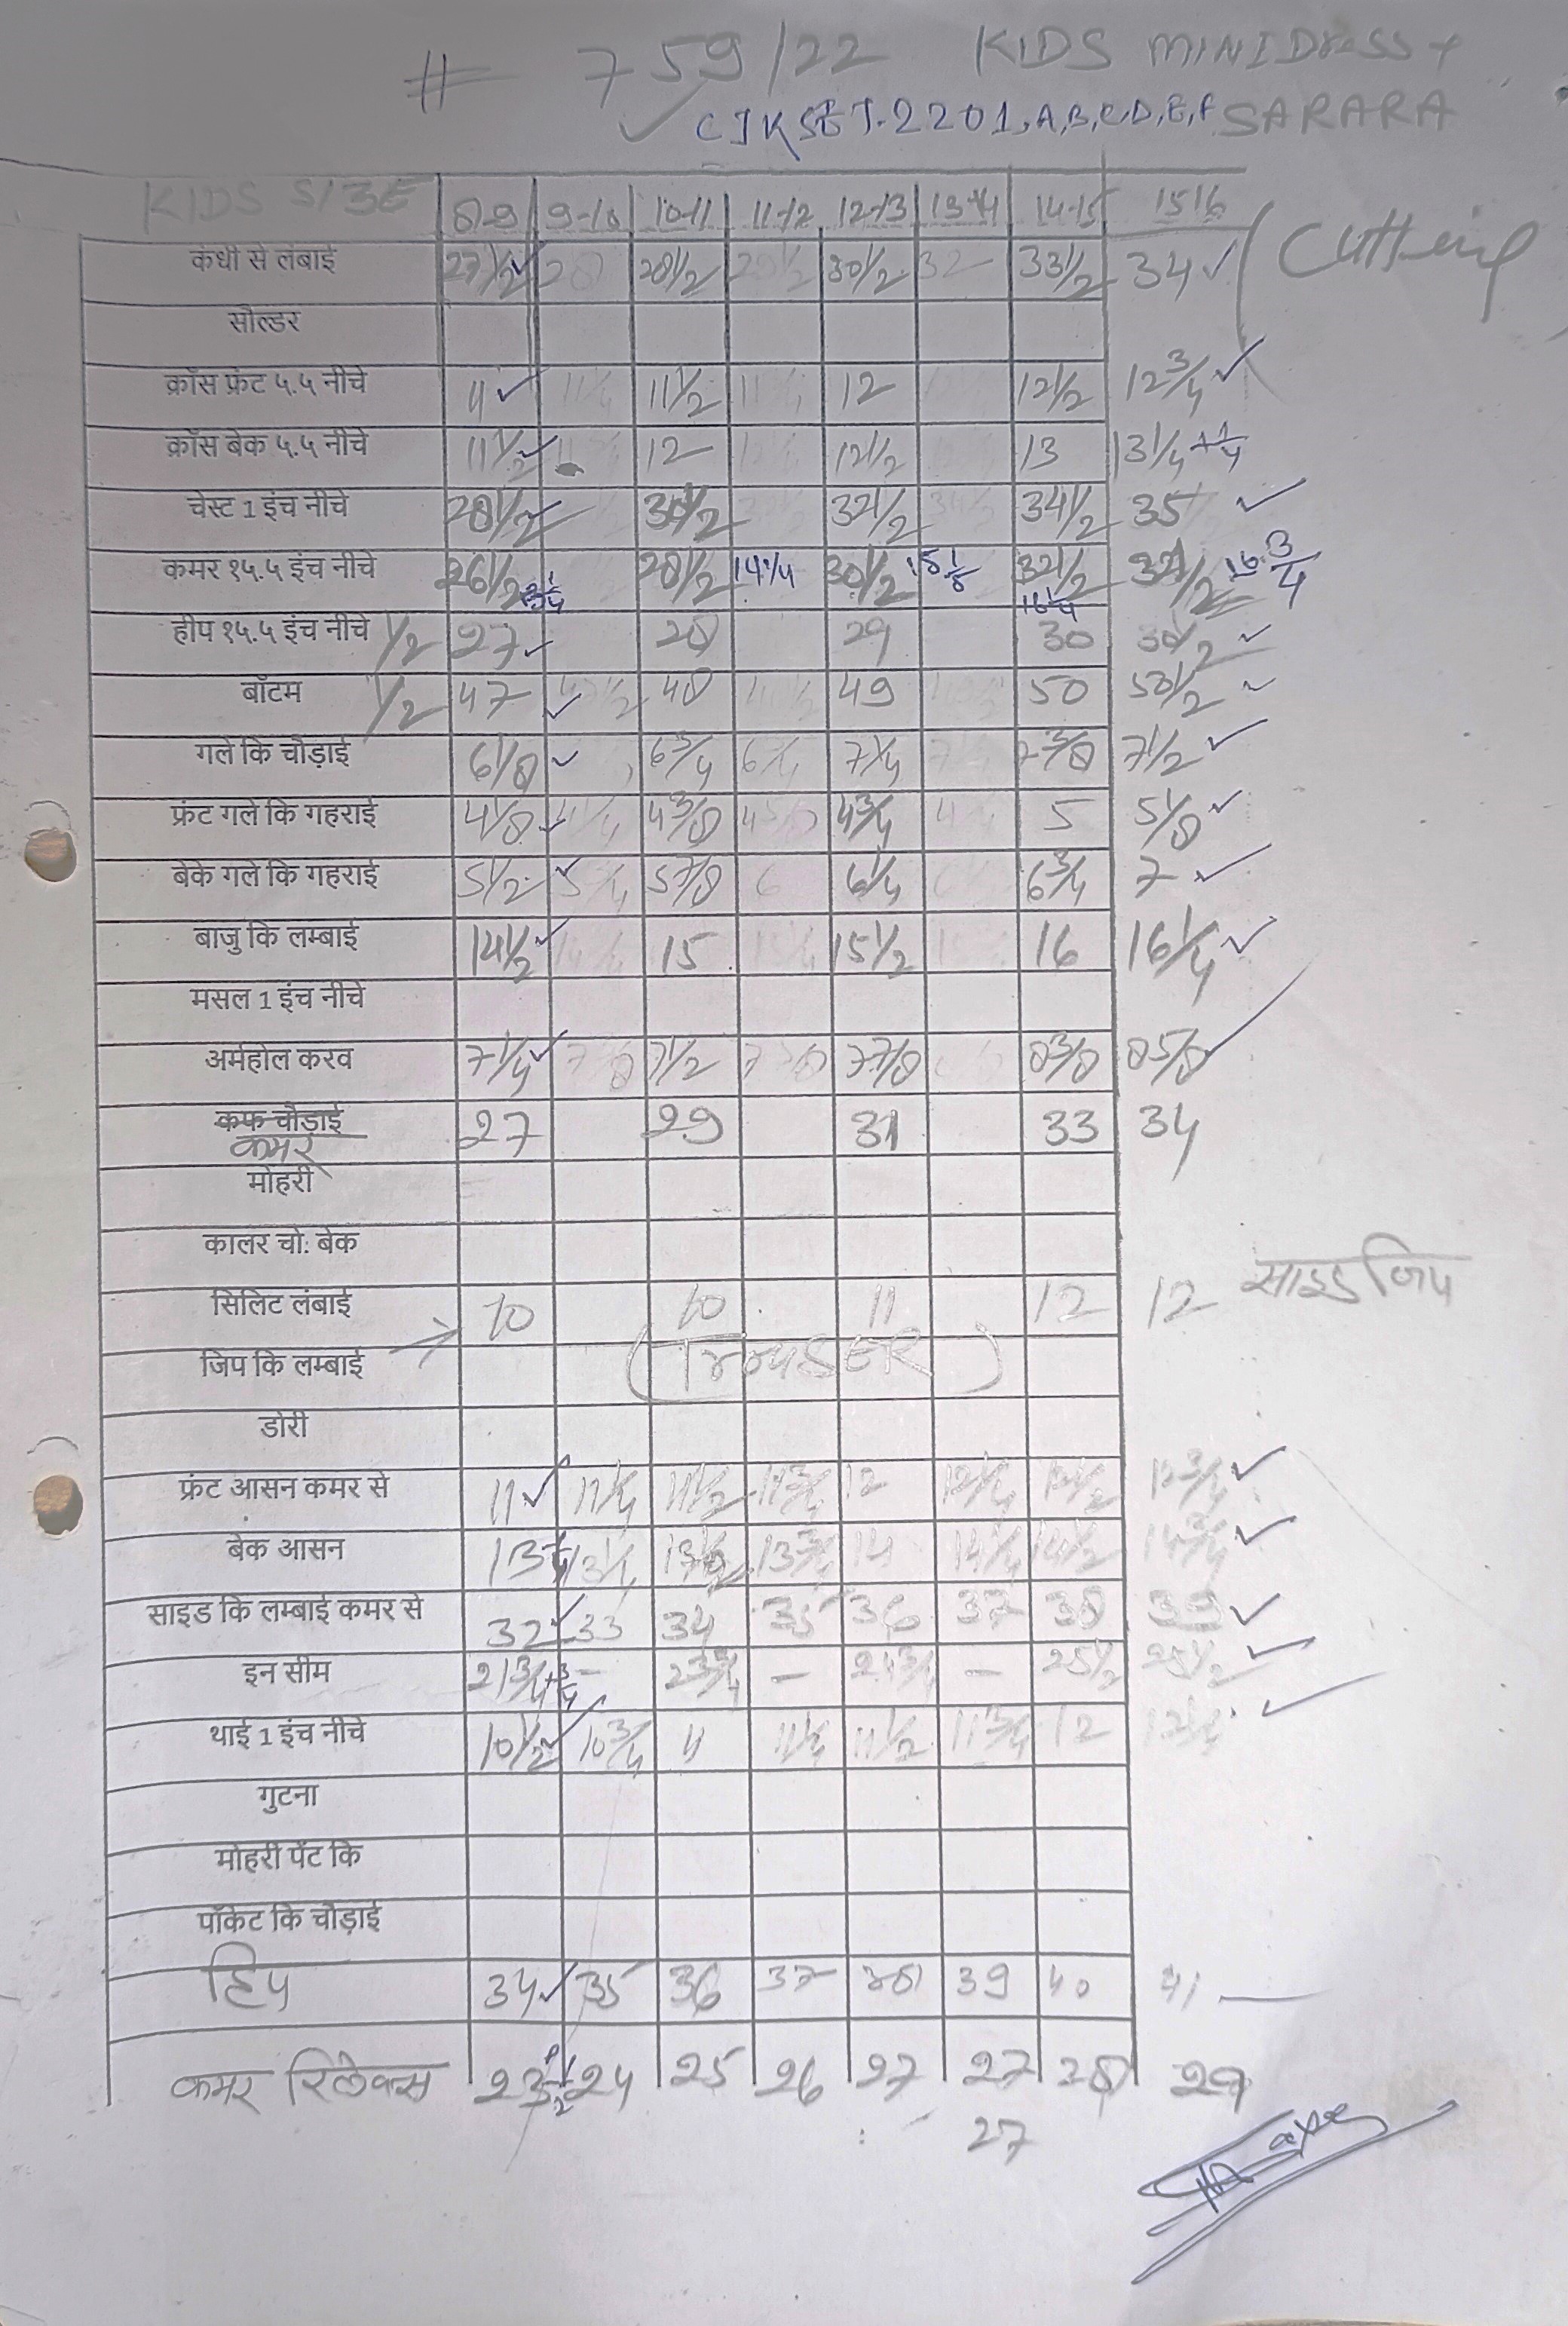 # 759/22 KIDS MINIDRESS +
CJKSET-2201,A,B,C,D,E,F SARARA
KIDS SIZE 8-9 9-10 10-11 11-12 12-13 13-14 14-15 15 16
कंधी से लंबाई 27 1/2 28 28 1/2 30 1/2 32 33 1/2 34 Cutting
सौल्डर
क्रॉस फ्रंट ५.५ नीचे 11 11 1/4 11 1/2 12 12 1/2 12 3/4
क्रॉस बेक ५.५ नीचे 11 1/2 12 12 1/2 13 13 1/4 + 1/4
चेस्ट 1 इंच नीचे 28 1/2 30 1/2 32 1/2 34 1/2 35
कमर १५.५ इंच नीचे 26 1/2 28 1/2 14 1/4 30 1/2 15 1/8 32 1/2 16 1/4 16 3/4
हीप १५.५ इंच नीचे 1/2 27 28 29 30 30 1/2
बॉटम 1/2 47 47 1/2 48 49 50 50 1/2
गले कि चौड़ाई 6 1/8 6 3/4 7 1/4 7 3/8 7 1/2
फ्रंट गले कि गहराई 4 1/8 4 1/4 4 3/8 4 5/8 4 3/4 5 5 1/8
बेके गले कि गहराई 5 1/2 5 3/4 5 7/8 6 6 1/4 6 3/4 7
बाजु कि लम्बाई 14 1/2 15 15 1/2 16 16 1/4
मसल 1 इंच नीचे
अर्महोल करव 7 1/4 7 1/2 7 7/8 8 3/8 8 5/8
कफ चौड़ाई
कमर 27 29 31 33 34
मोहरी
कालर चो: बेक
सिलिट लंबाई 10 10 11 12 12 साइड जिप
जिप कि लम्बाई (TrouSER)
डोरी
फ्रंट आसन कमर से 11 11 1/4 11 1/2 11 3/4 12 12 1/4 12 1/2 12 3/4
बेक आसन 13 13 1/4 13 1/2 13 3/4 14 14 1/4 14 1/2 14 3/4
साइड कि लम्बाई कमर से 32 33 34 35 36 37 38 39
इन सीम 21 3/4 + 3/4 - 23 3/4 - 24 3/4 - 25 1/2 25 1/2
थाई 1 इंच नीचे 10 1/2 10 3/4 11 11 1/4 11 1/2 11 3/4 12 12 1/4
गुटना
मोहरी पेंट कि
पॉकेट कि चौड़ाई
हिप 34 35 36 37 38 39 40 41
कमर रिलेक्स 23 1/2 24 25 26 27 27 28 29
27